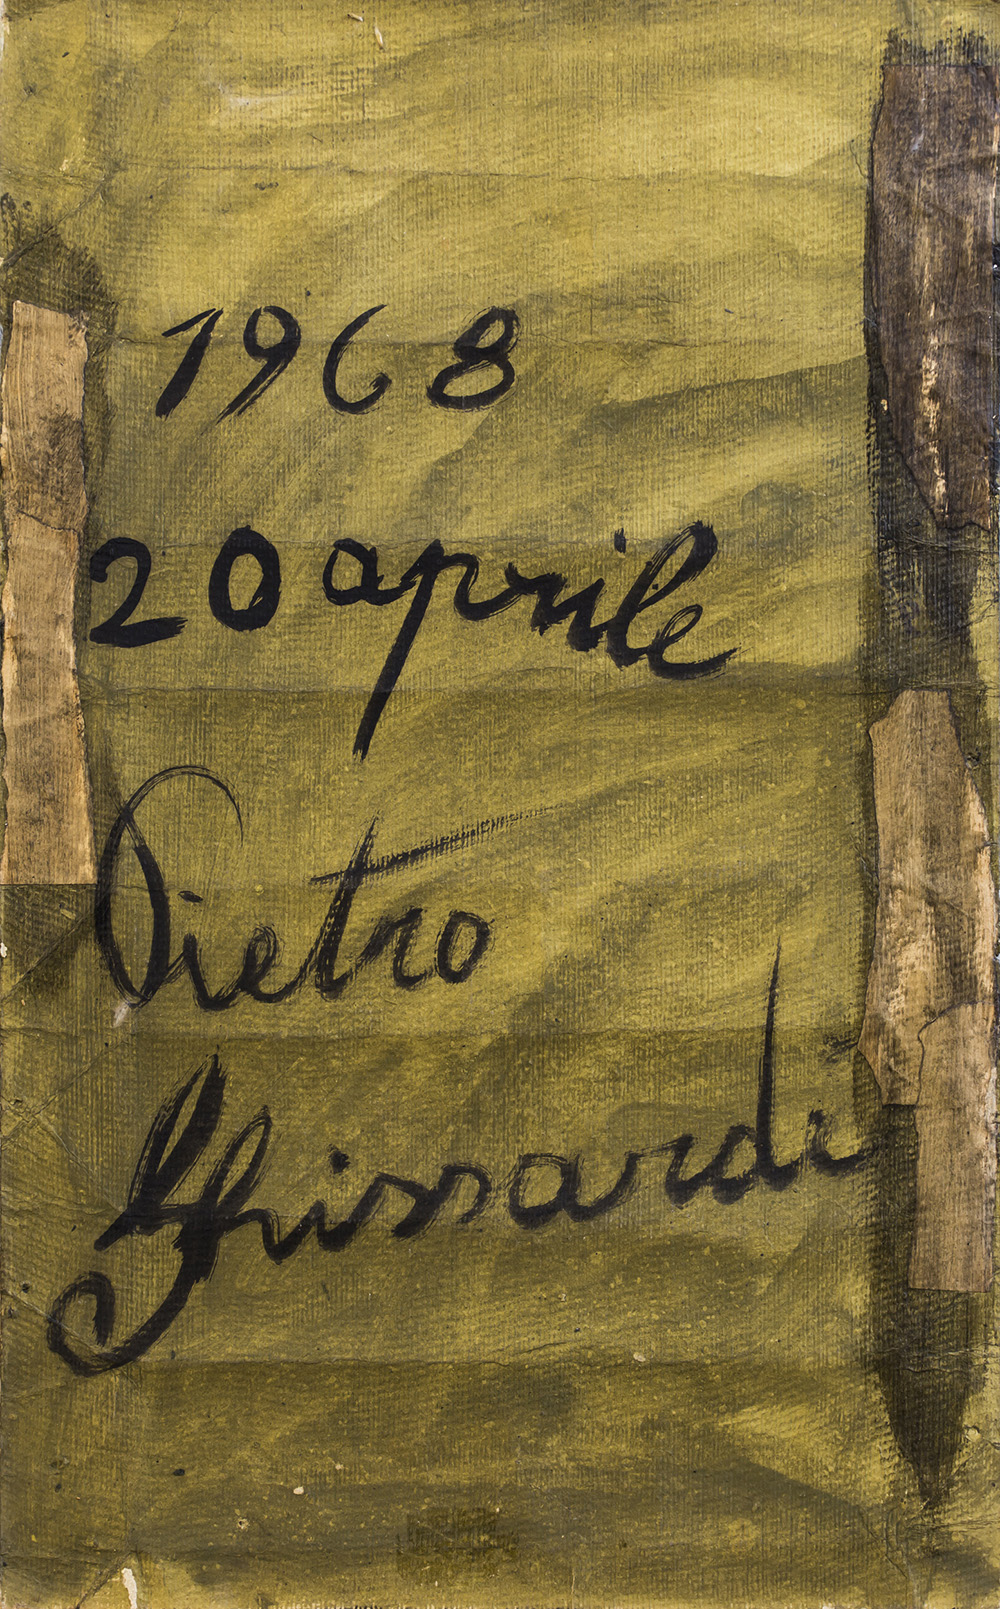 1968
20 aprile
Pietro
Ghissardi